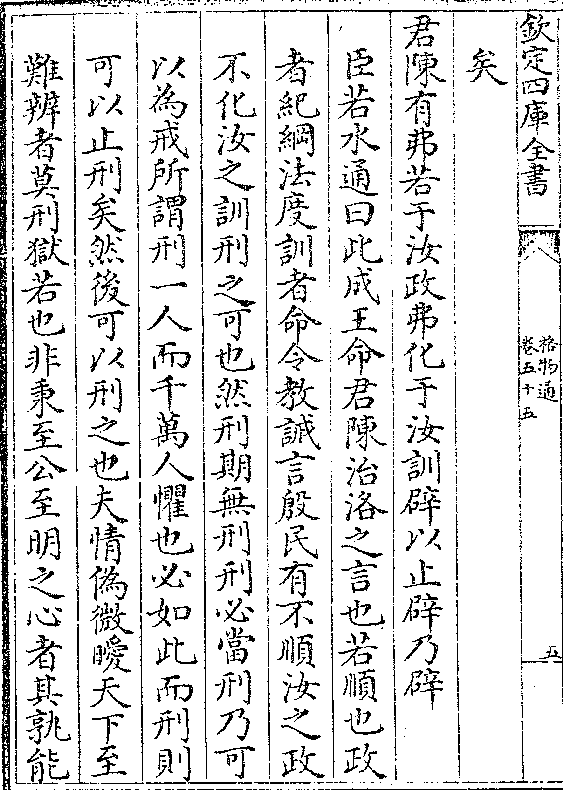 欽定四庫全書
格物通
卷五十五
五
矣
君陳有弗若于汝政弗化于汝訓辟以止辟乃辟
臣若水通曰此成王命君陳治洛之言也若順也政
者紀綱法度訓者命令教誡言殷民有不順汝之政
不化汝之訓刑之可也然刑期無刑刑必當刑乃可
以為戒所謂刑一人而千萬人懼也必如此而刑則
可以止刑矣然後可以刑之也夫情偽微曖天下至
難辨者莫刑獄若也非秉至公至明之心者其孰能